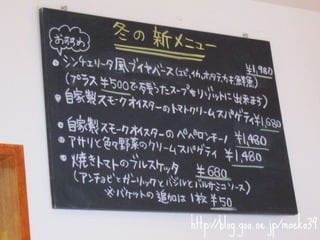 おすすめ
冬の新メニュー
・シンチェリータ風ブイヤベース(エビ,イカ,ホタテ,カキ,鮮魚) ¥1,980
(プラス¥500で残ったスープをリゾットに出来ます)
・自家製スモークオイスターのトマトクリームスパゲティ ¥1,680
・自家製スモークオイスターのペペロンチーノ ¥1,480
・アサリと色々野菜のクリームスパゲティ ¥1,480
・焼きトマトのブルスケッタ ¥680
(アンチョビとガーリックとバジルとバルサミコソース)
※バケットの追加は1枚¥50
http://blog.goo.ne.jp/maeko39